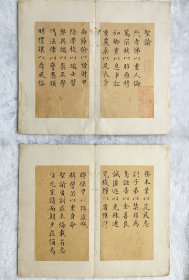 聖諭
敦孝弟以重人倫
篤宗族以昭雍睦
和鄉黨以息爭訟
重農桑以足衣食
尚節儉以惜財用
隆學校以端士習
黜異端以崇正學
講法律以儆愚頑
明禮讓以厚風俗
務本業以定民志
訓子弟以禁非為
息誣告以全善良
誡匿逃以免株連
完錢糧以省催科
聯保甲以弭盜賊
解讐忿以重身命
聖諭廣訓